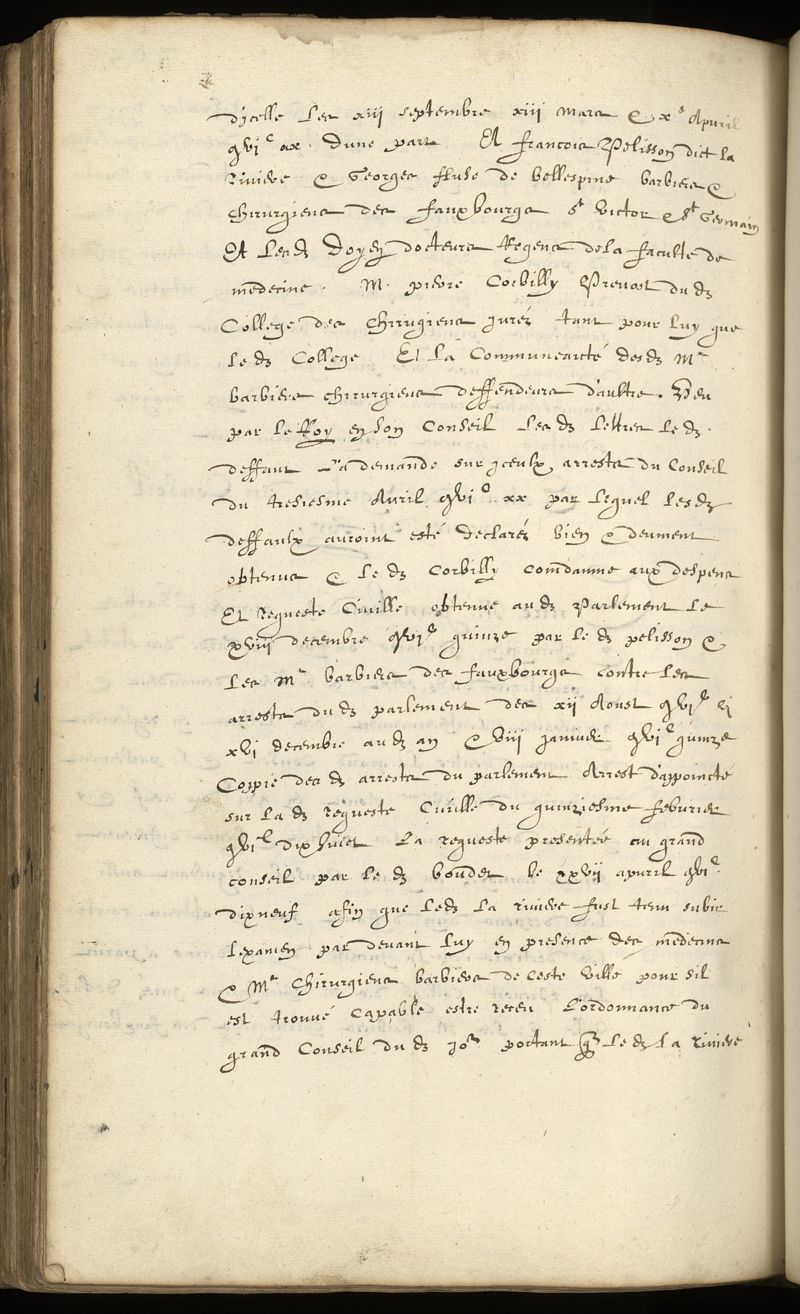 dycelle les xiii septembre xiii mars & xe Apuril
gvic xx. Dune part Et francois Pelisson dict la
Riviere & Georges fluse de bellespine barbiers &
Chirurgiens des fauxbourgs st victor & st Germain
Et Lesd Doyen docteurs Regens dela faculte de
medecine. M. pierre Corbilly Prevost dud
College des Chirugiens jurez tant pour luy que
le d College Et La Communeaulté desd Mes
barbiers chirurgiens deffendeurs d'aultre. Veu
par le Roy en Son Conseil Lesd lettres led.
deffaut La demande sur jceulx arrests du Conseil
du tresiesme Avril gvic xx par lequel lesd
deffaulx auroint esté declarez bien & deument
obtenus & le d Corbilly comdamne aux despens
Et Requeste Civille obtenue aud Parlement le
xviii decembre gvic quinze par le d pelisson &
Les Mes barbiers des fauxbourgs contre les
arrests dud parlement des xii Aoust gvic xi
xvi decembre aud an & viii janvier gvic quinze
Coppie desd arrests du parlement Arrest d'appoincté
sur la d requeste Civille du quinziesme febvrier
gvic dix huict La requeste presentée au grand
conseil par le d boudet le xxvii apuril gvic.
dixneuf afin que led la riviere fust tenu subir
lexamen par devant luy en presence des medecins
& Mes Chirurgiens barbiers de ceste ville pour sil
est trouvé capable estre receu L'ordonnance du
grand Conseil du d jor portant que le d la riviere